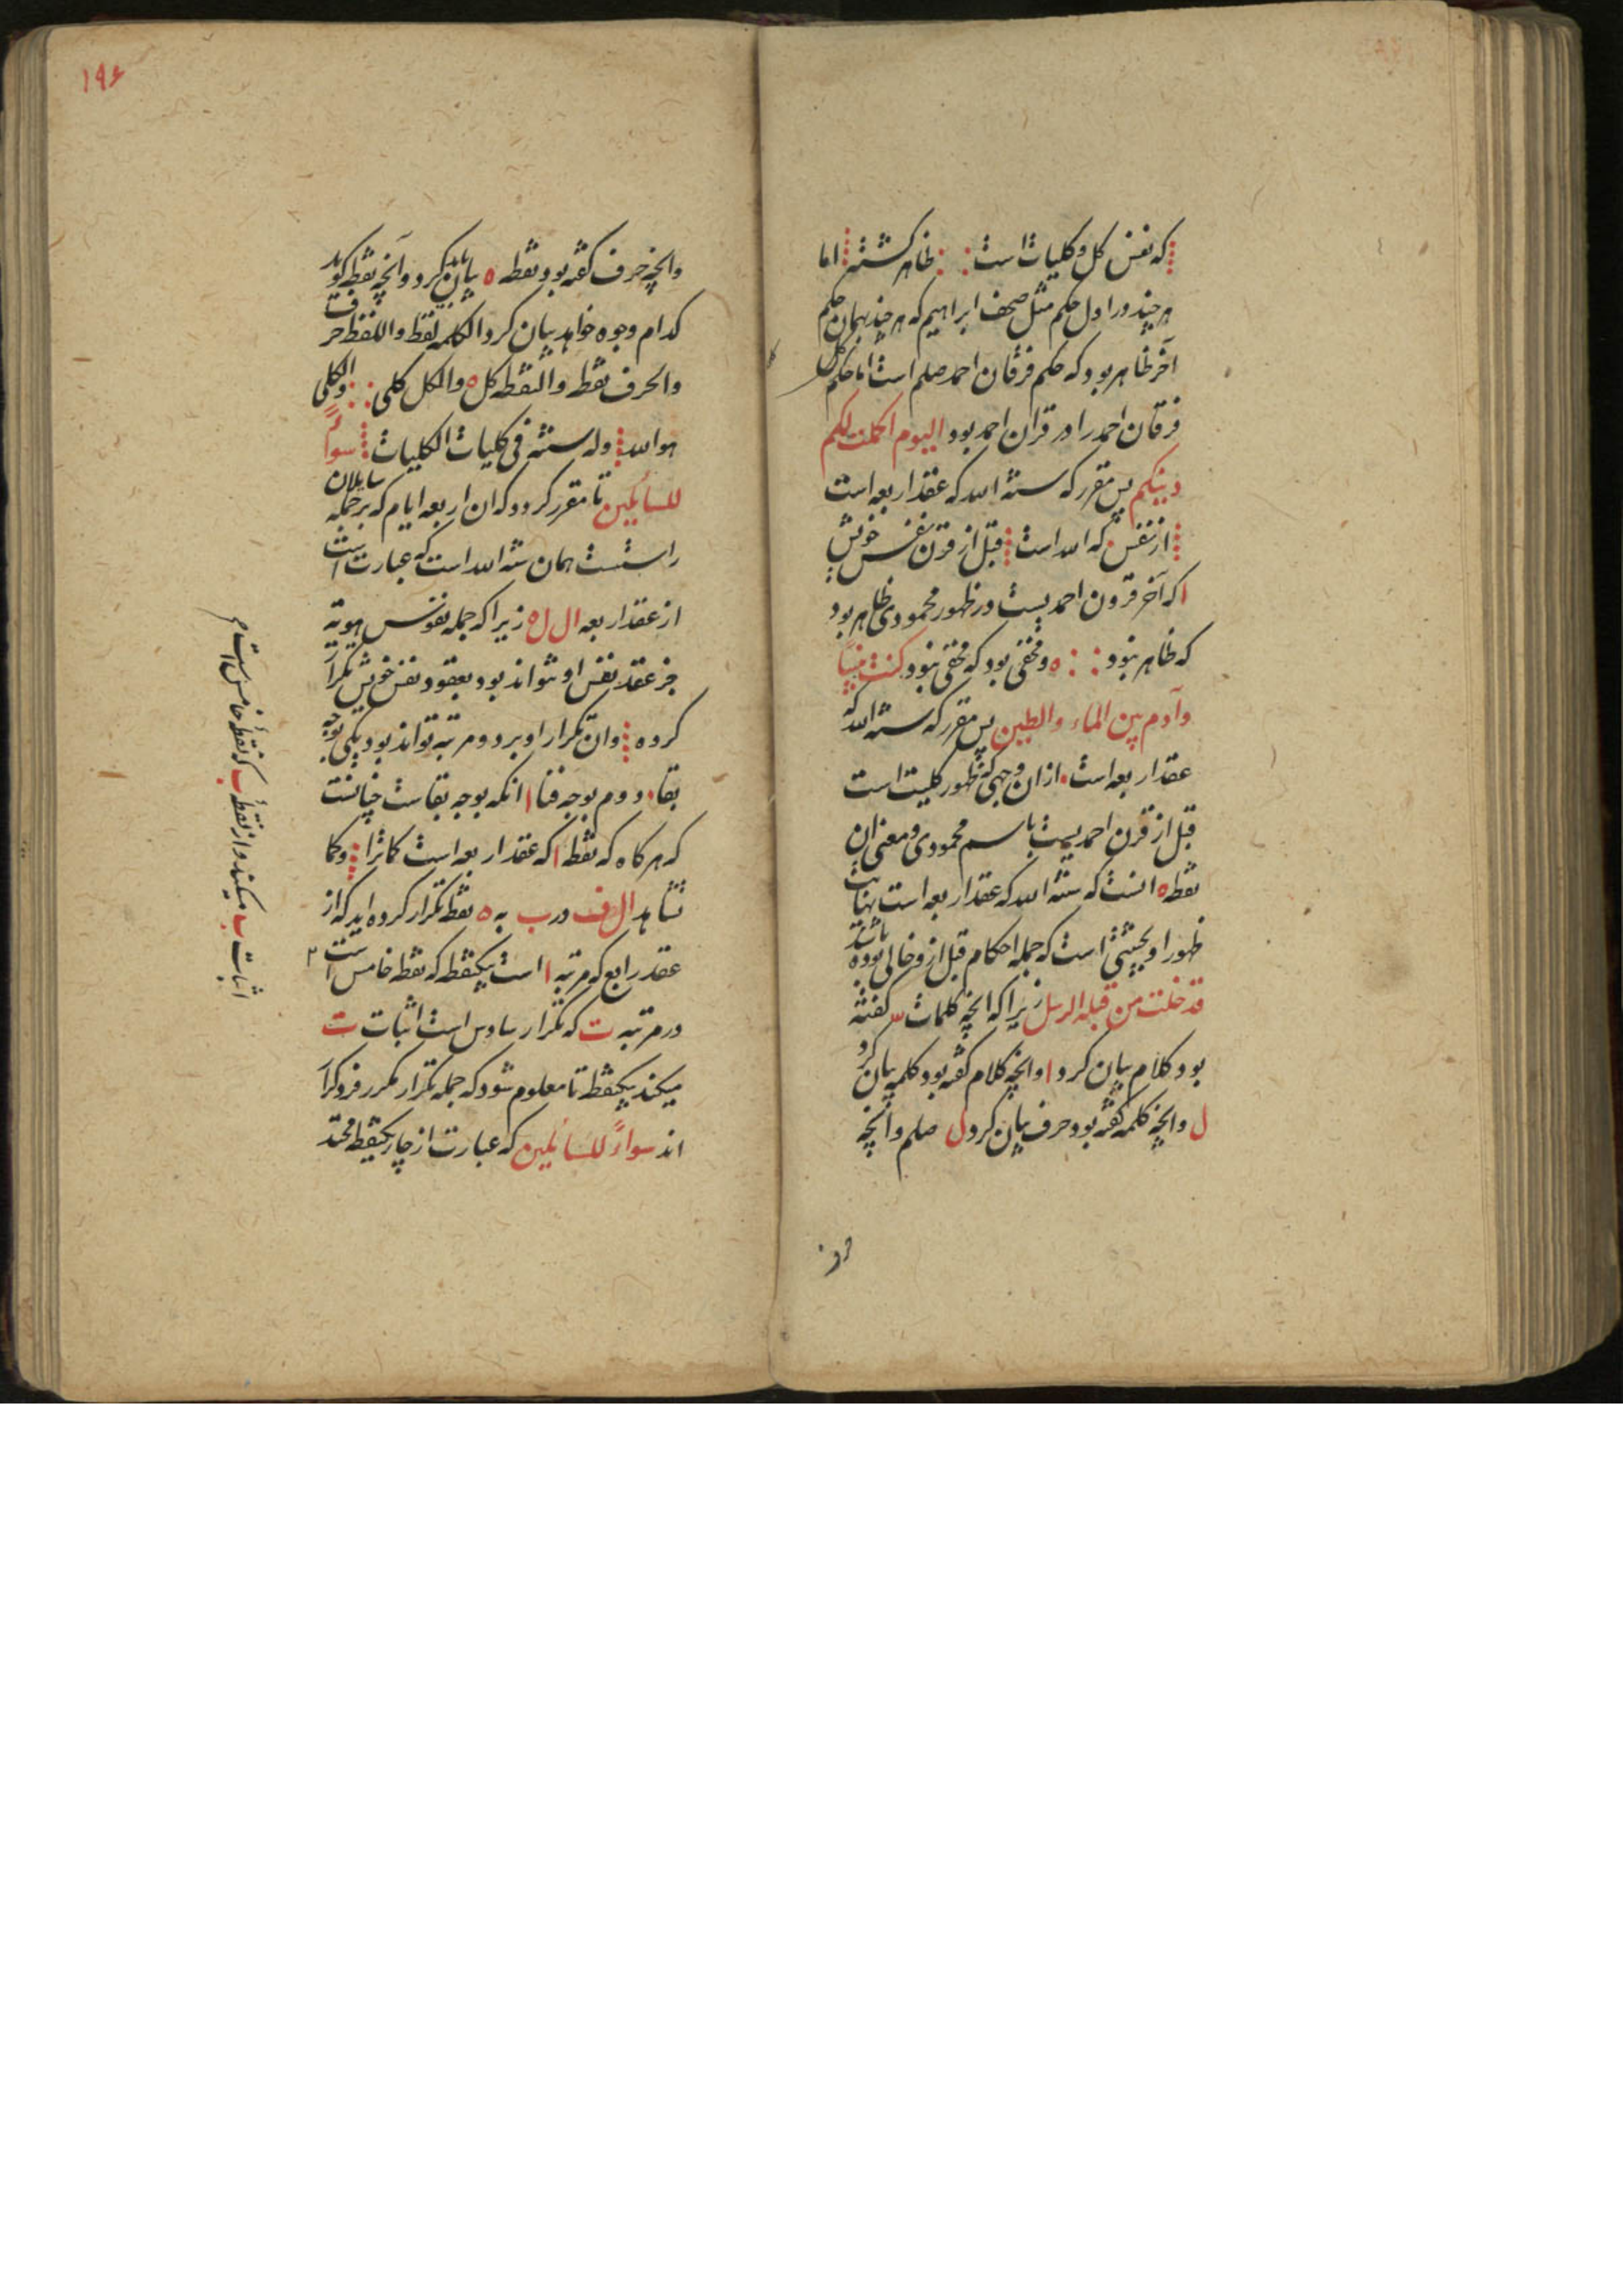 که نفس کل و کلیات است ظاهر کشته اما
هر چند در اول حکم مثل صحف ابراهیم که هر چند همان حکم
آخر ظاهر بود که حکم فرقان احمد صلم است اما حکم کل
فرقان احمد را در قران احمد بود الیوم اکملت لکم
دینکم پس مقرر که سنة الله که عقد اربعه است
از نفس که الله است قبل از قرن نفس خویش
ا که آخر قرون احمدیست در ظهور محمودی ظاهر بود
که ظاهر نبود ه و مخفی بود که مخفی نبود کنت نبیاً
و آدم بین الماء والطین پس مقرر که سنة الله که
عقد اربعه است از ان وجهی که ظهور کلیت است
قبل از قرن احمدیت باسم محمودی و معنی ان
نقطه ه انست که سنة الله که عقد اربعه است نهایت
ظهور او بحیثیتی است که جمله احکام قبل ازو خالی بوده باشند
قد خلت من قبله الرسل زیرا که انچه کلمات س کفته
بود کلام بیان کرد ا و انچه کلام کفته بود کلمه بیان کرد
ل و انچه کلمه کفته بود حرف بیان کرد ل صلم و انچه
۱۹۶
و انچه حرف کفته بود نقطه ه بیان کرد و آنچه نقطه کوید
کدام وجوه خواهد بیان کرد الکلمه لفظ و اللفظ حرف
والحرف نقطه والنقطه کل ه والکل کلی والکلی
هو الله وله سنته فی کلیات الکلیات سواءً
للسائلین تا مقرر کردد که ان اربعه ایام که بر جمله سایلان
راست همان سنة الله است که عبارت است
از عقد اربعه ال ل ه زیرا که جمله نفوس هویة
جز عقد نفس او نتواند بود بعقود نفس خویش تکرار
کرده و ان تکرار او بر دو مرتبه تواند بود یکی بوجه
بقا دوم بوجه فنا ا انکه بوجه بقاست چنانست
که هر کاه که نقطه ا که عقد اربعه است کماترا و کما
تشاهد ال ف در ب به ه نقطه تکرار کرده اید که از
عقد رابع که مرتبه ا است بیکنقطه که نقطه خامس است ۲
در مرتبه ت که تکرار سادس است اثبات ت
میکند بیکنقطه تا معلوم شود که جمله تکرار مکرر فرو کرا
اند سواءً للسائلین که عبارت از چار یکنقطه متحد
اثبات ب میکند و از نقطهٔ ب که نقطهٔ خامس است